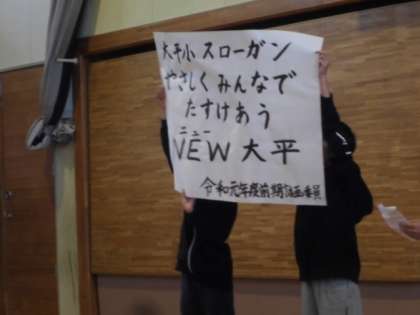 大平小 スローガン
やさしく みんなで
たすけあう
ニュー
NEW 大平
令和元年度前期計画委員